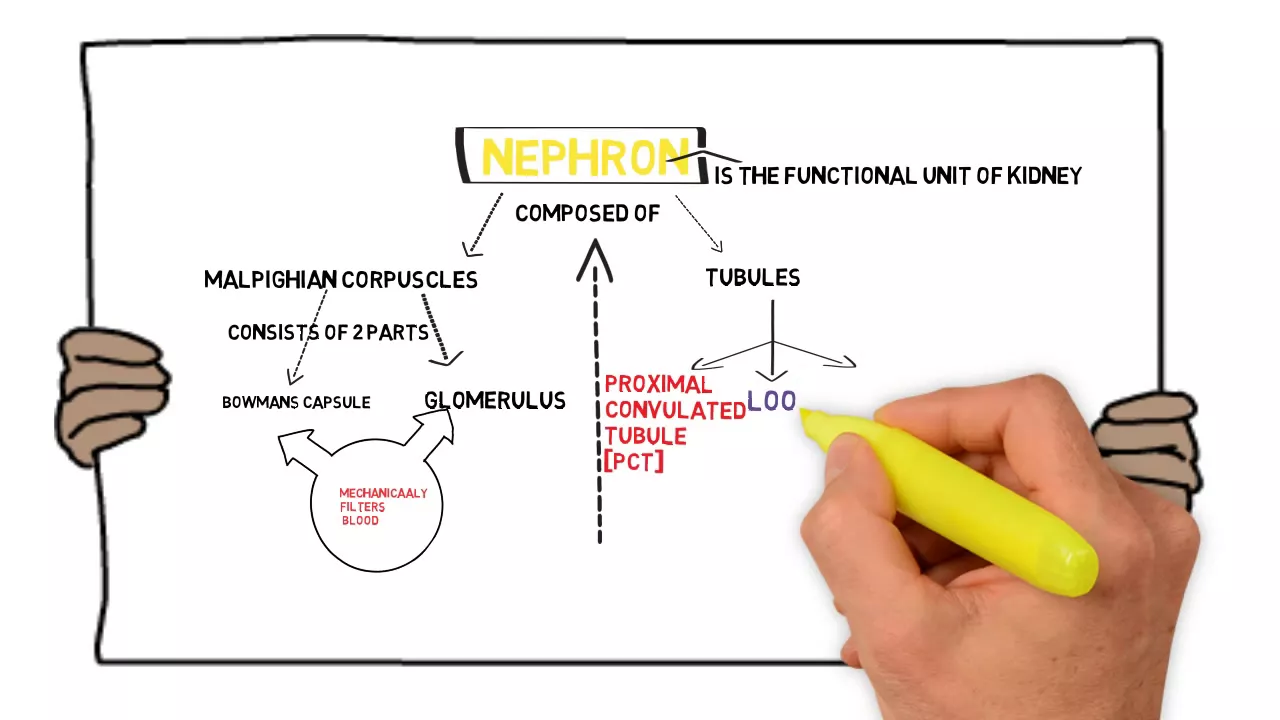 NEPHRON
IS THE FUNCTIONAL UNIT OF KIDNEY
COMPOSED OF
MALPIGHIAN CORPUSCLES
TUBULES
CONSISTS OF 2 PARTS
BOWMANS CAPSULE
GLOMERULUS
PROXIMAL
CONVULATED
TUBULE
[PCT]
LOO
MECHANICAALY
FILTERS
BLOOD